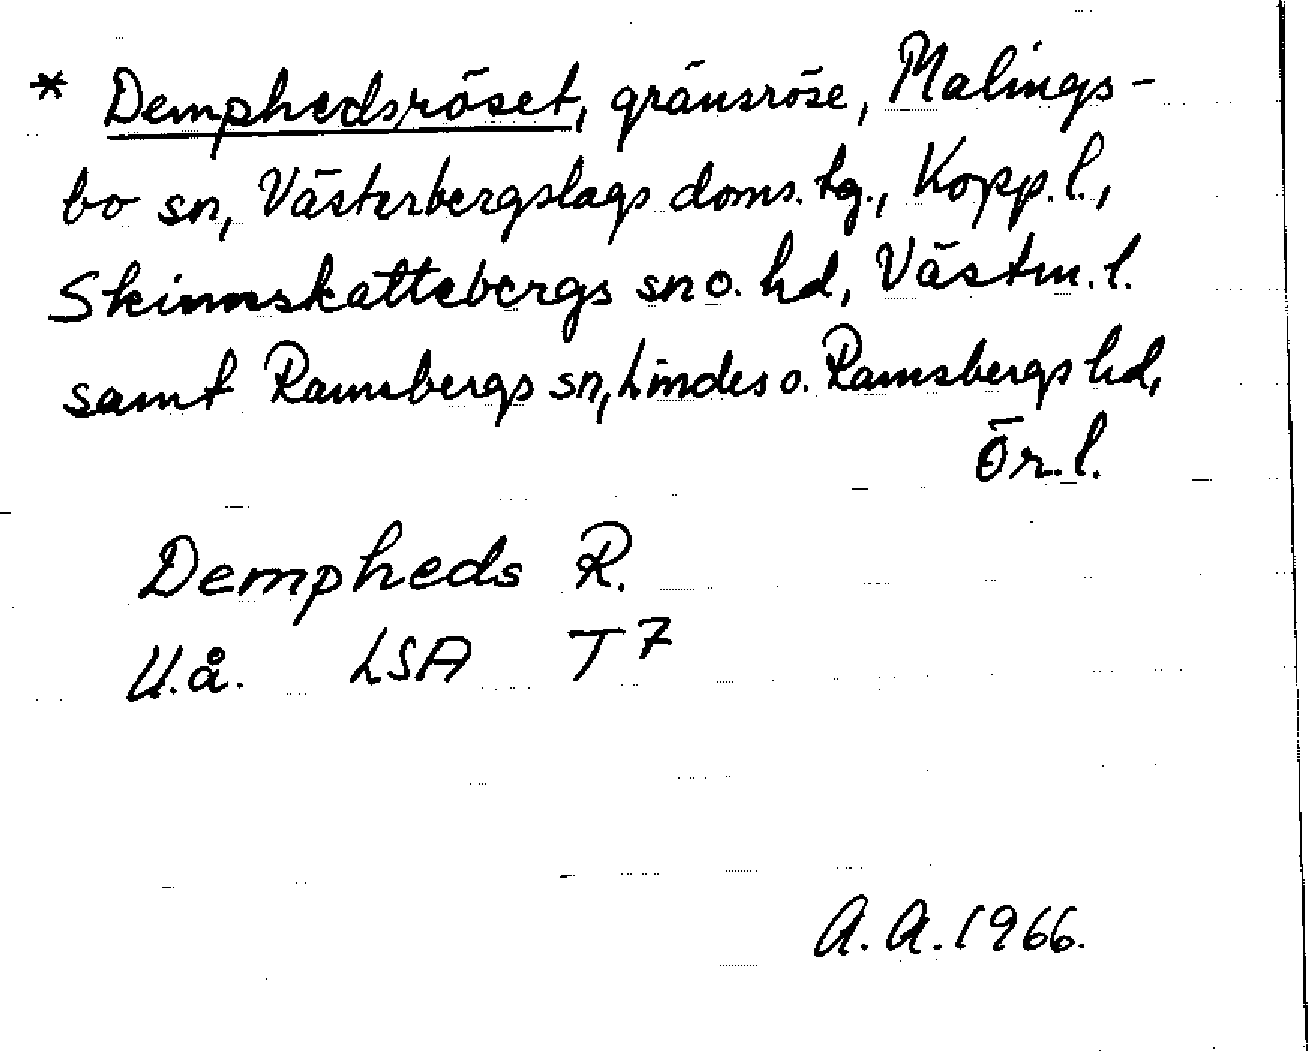 * Demphedsröset, gränsröse, Malings-
bo sn, Västerbergslags doms. tg., Kopp. l.,
Skinnskattebergs sn o. hd, Västm. l.
samt Ramsbergs sn, Lindes o. Ramsbergs hd,
Ör. l.
Dempheds R.
U.å. LSA T 7
A. A. 1966.